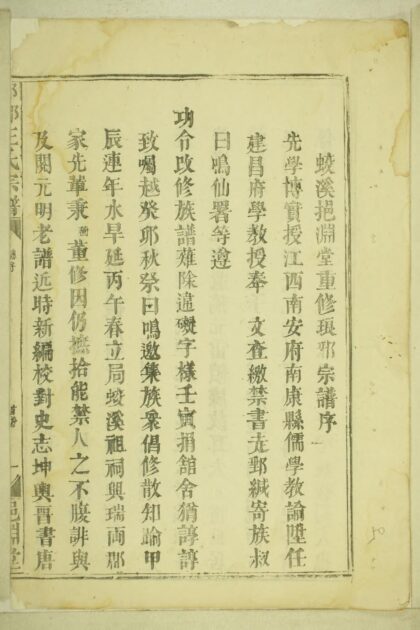 蛟溪挹淵堂重修瑯邪宗譜序
先學博實授江西南安府南康縣儒學教諭陞任
建昌府學教授奉 文查繳禁書走郵緘寄族叔
曰鳴仙署等遵
功令改修族譜薙除違礙字樣壬寅捐舘舍猶諄諄
致囑越癸卯秋祭曰鳴邀集族衆倡修散知踰甲
辰連年水旱延丙午春立局蛟溪祖祠與瑞両郡
家先輩秉衡董修因仍摭拾能禁人之不腹誹與
及閱元明老譜近時新編校對史志坤輿晋書唐
王氏宗譜
挹淵堂